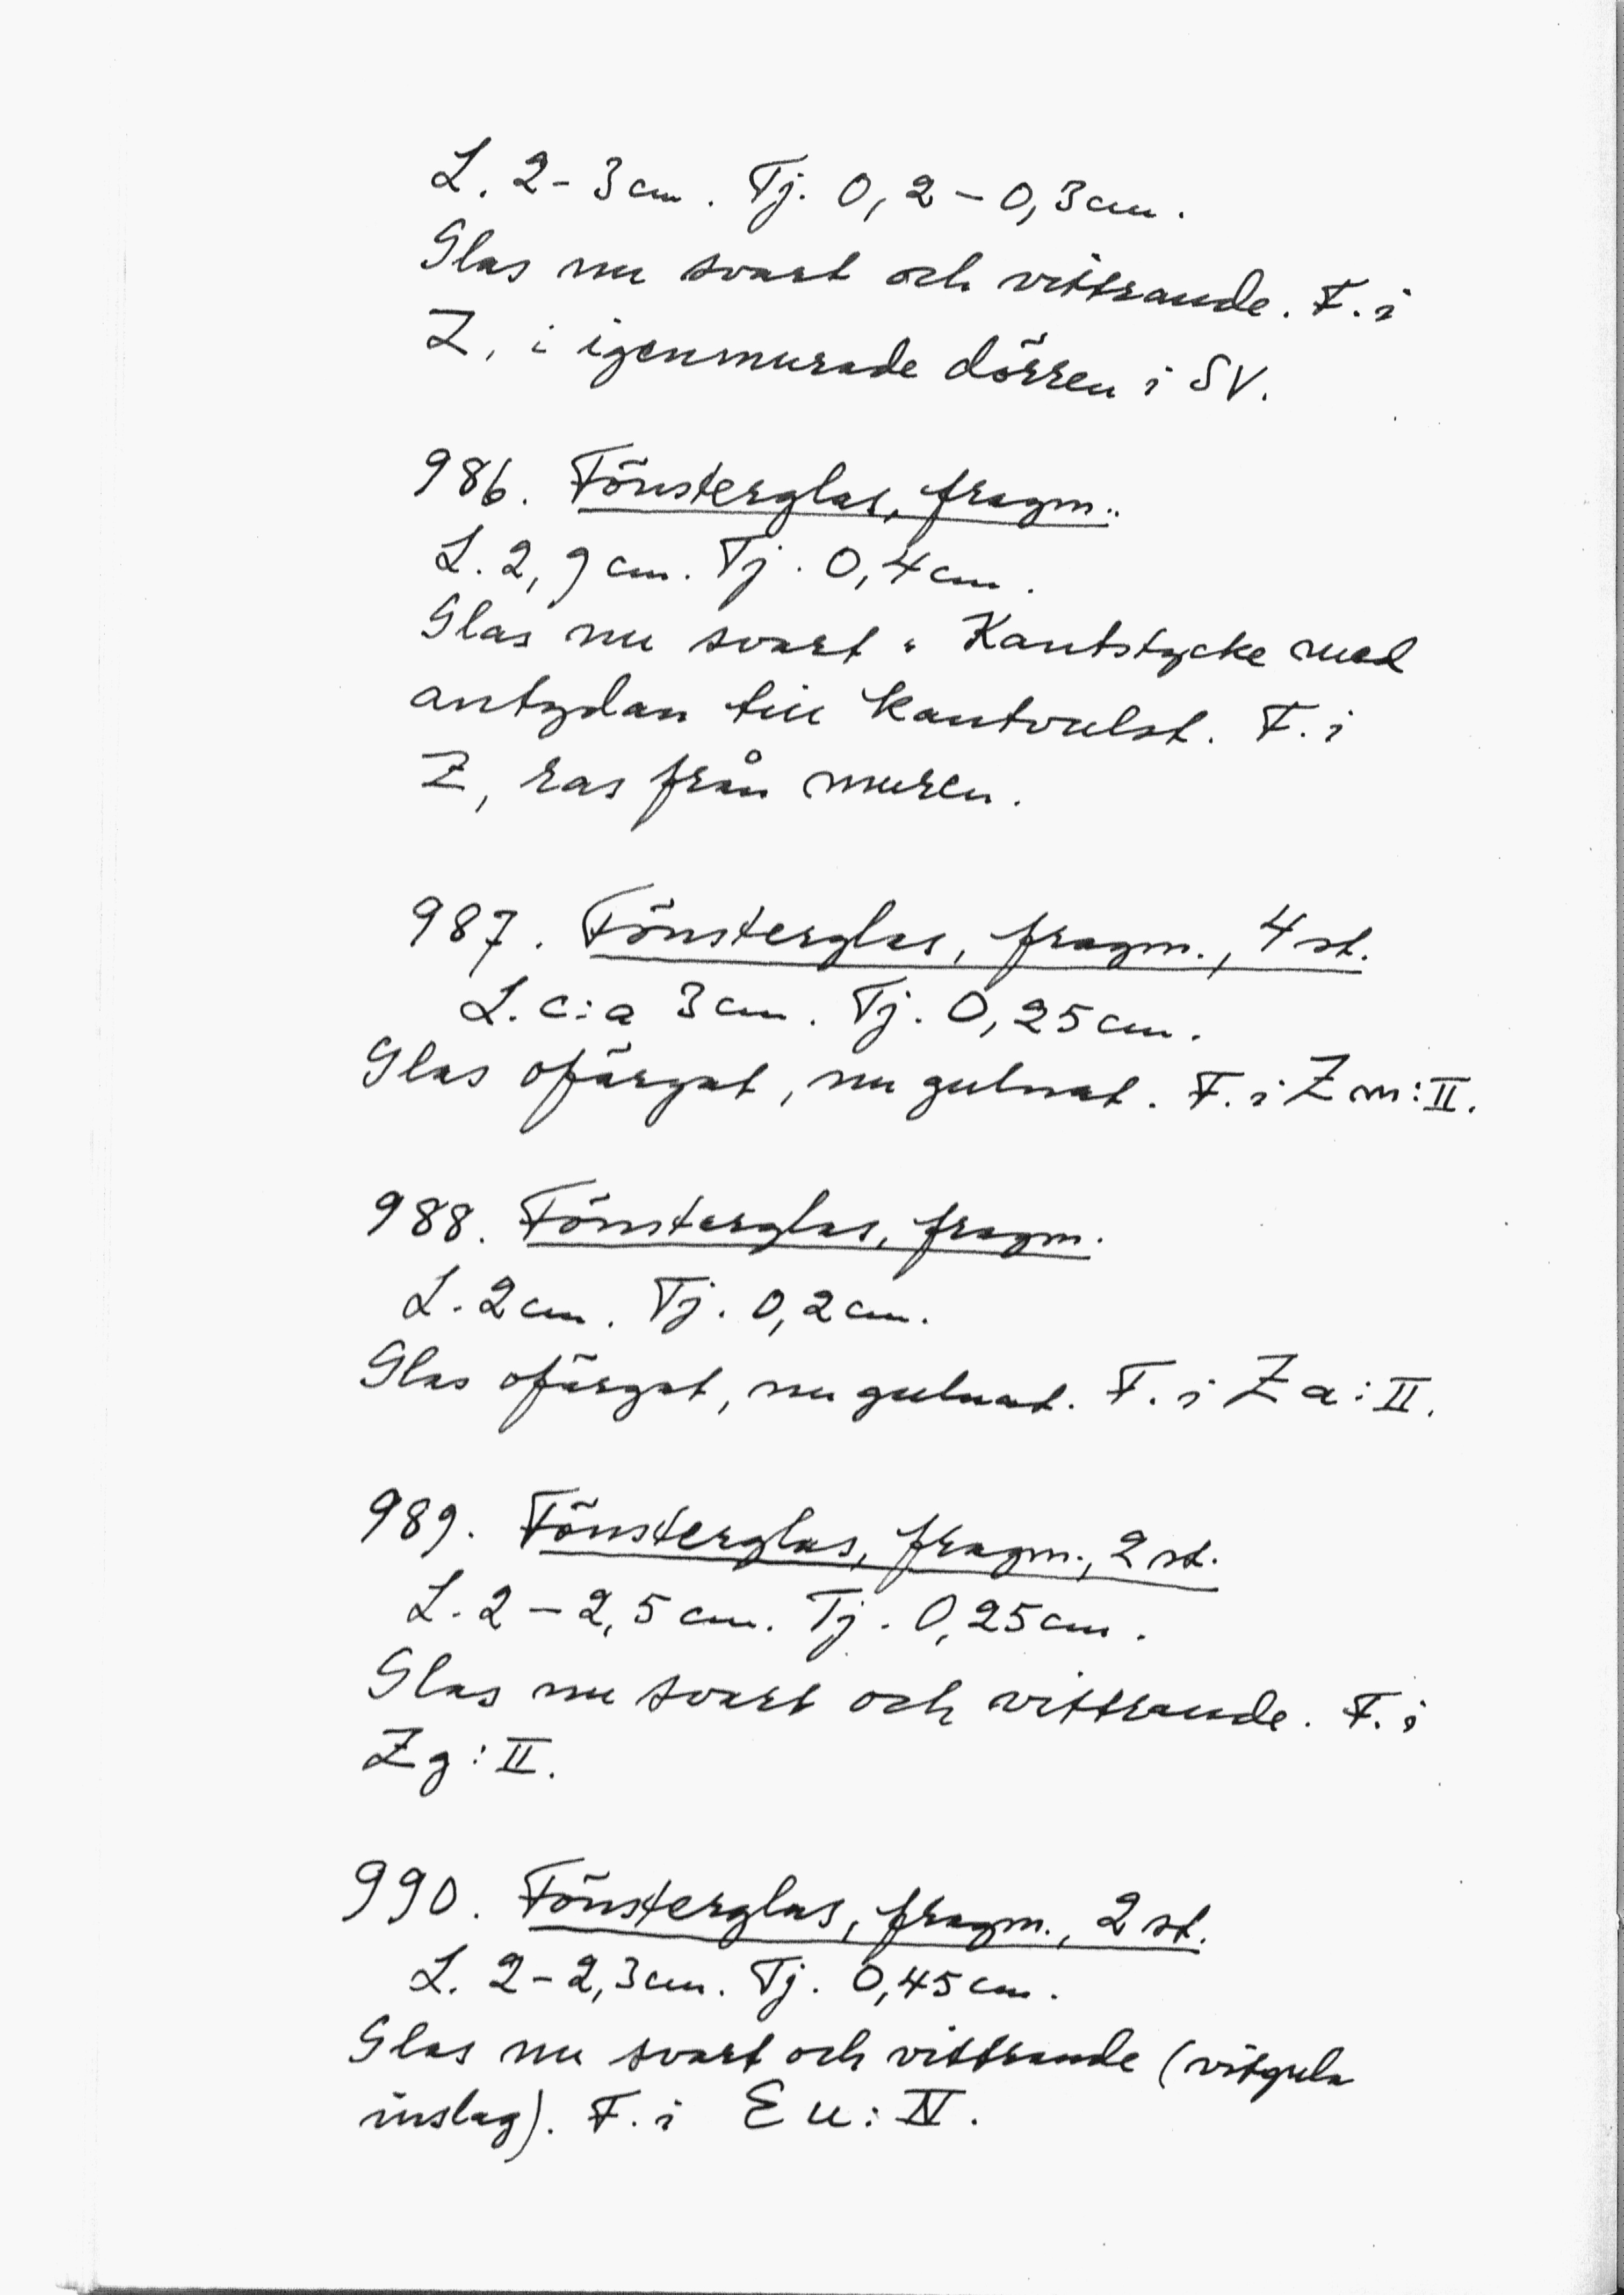 L. 2-3 cm. Tj. 0,2-0,3 cm.
Glas nu svart och vittrande. F. i
Z, i igenmurade dörren i SV.
986. Fönsterglas, fragm..
L. 2,9 cm. Tj. 0,4 cm.
Glas nu svart. Kantstycke med
antydan till kantvulst. F. i
Z, ras från muren.
987. Fönsterglas, fragm., 4 st.
L. c:a 3 cm. Tj. 0,25 cm.
Glas ofärgat, nu gulnat. F. i Z m:II.
988. Fönsterglas, fragm.
L. 2 cm. Tj. 0,2 cm.
Glas ofärgat, nu gulnat. F. i Z a:II.
989. Fönsterglas, fragm., 2 st.
L. 2-2,5 cm. Tj. 0,25 cm.
Glas nu svart och vittrande. F. i
Z g:II.
990. Fönsterglas, fragm., 2 st.
L. 2-2,3 cm. Tj. 0,45 cm.
Glas nu svart och vittrande (vitgula
inslag). F. i E u:IV.